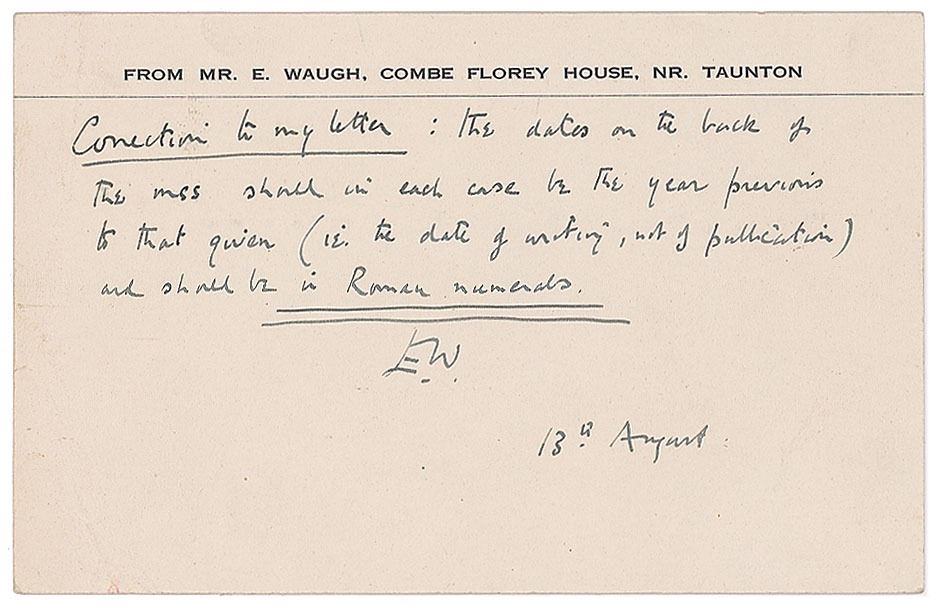 FROM MR. E. WAUGH, COMBE FLOREY HOUSE, NR. TAUNTON
Correction to my letter : The dates on the back of
the mss should in each case be the year previous
to that given (i.e. the date of writing, not of publication)
and should be in Roman numerals.
E.W.
13th August